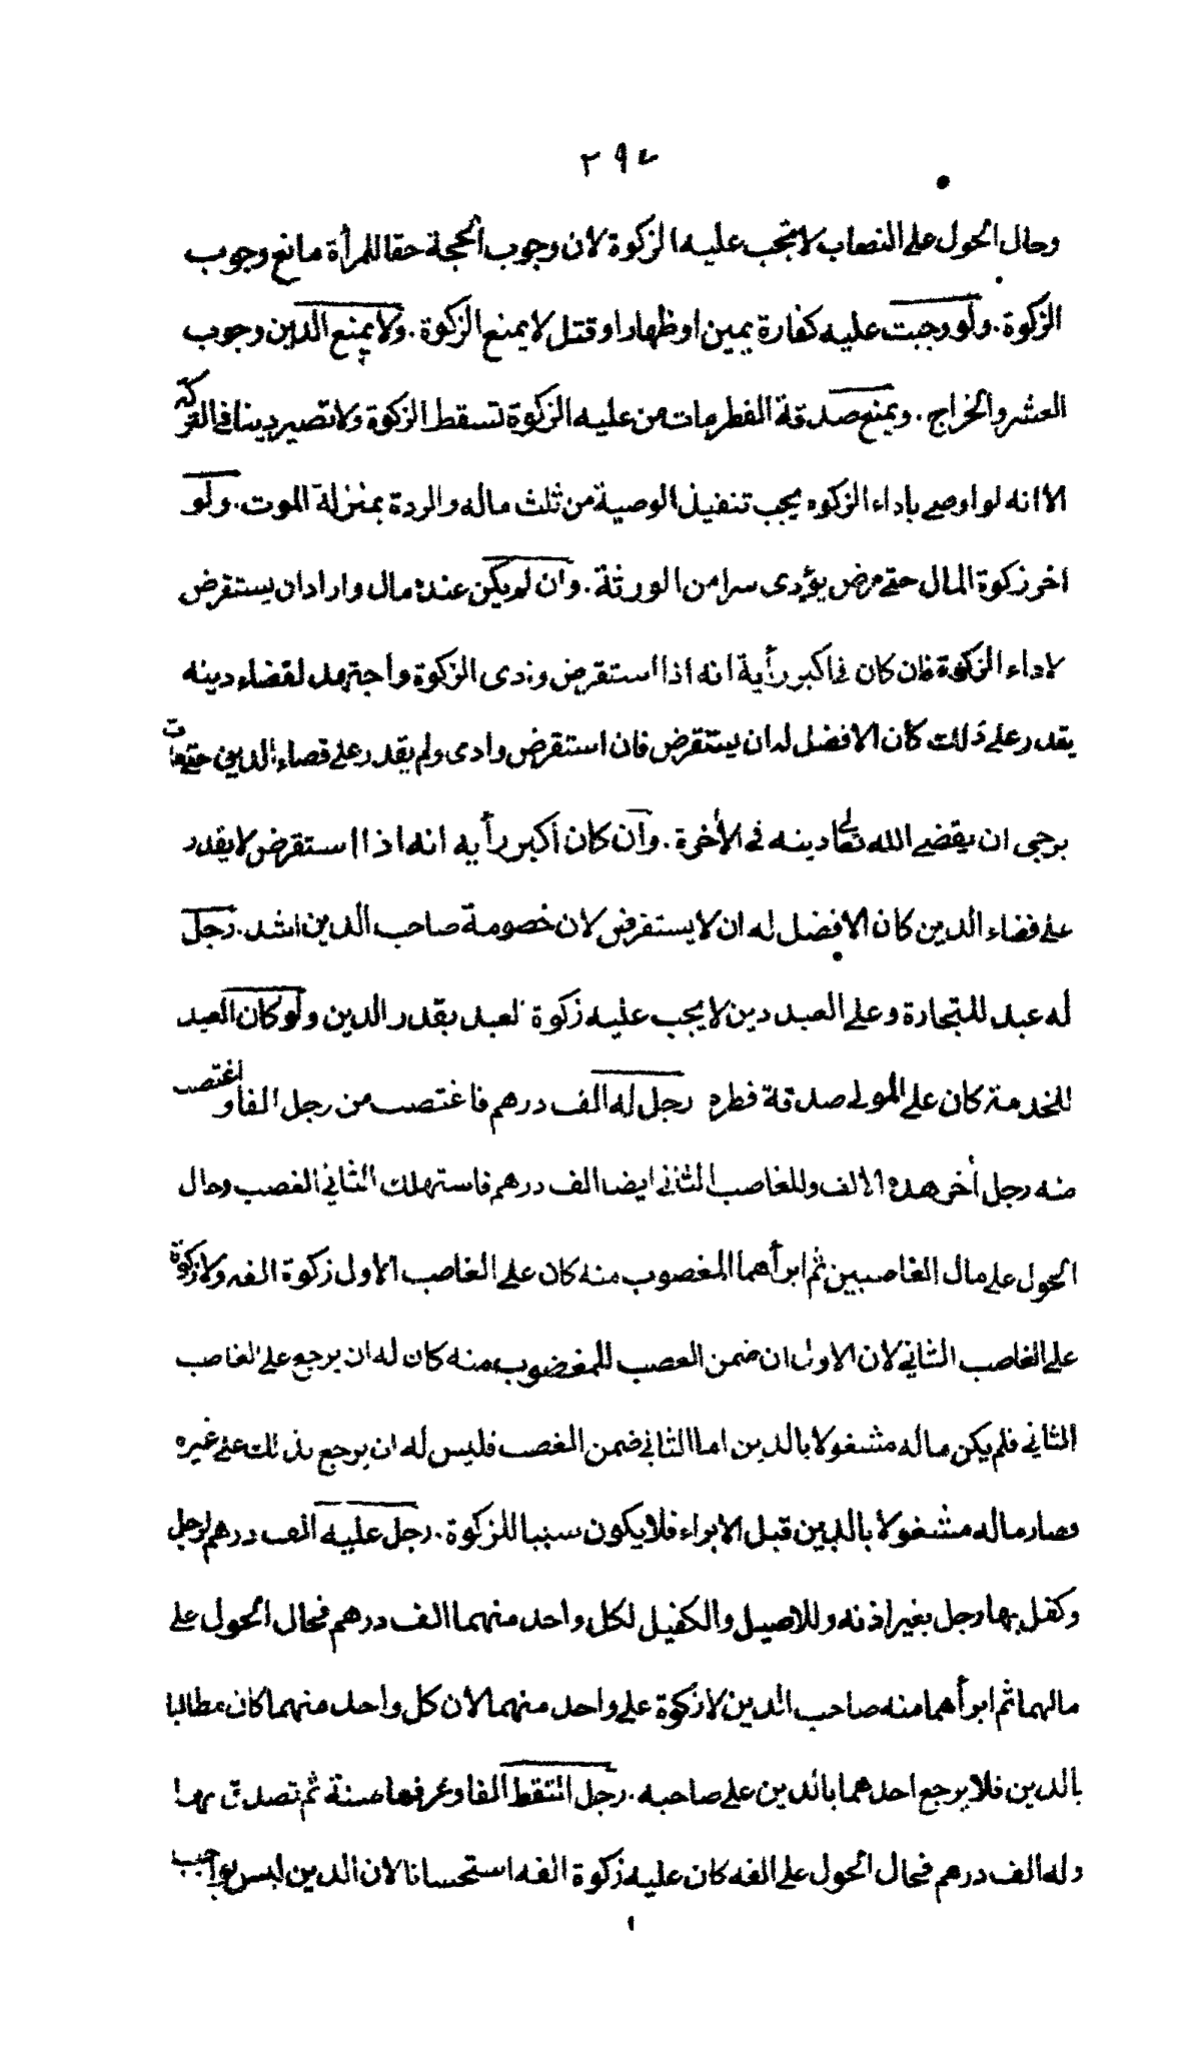 ٢٩٤
وحال الحول على النصاب لا تجب عليه الزكوة لان وجوب الحجة حقا للمرأة مانع وجوب
الزكوة . ولو وجبت عليه كفارة يمين او ظهار او قتل لا يمنع الزكوة . ولا يمنع الدين وجوب
العشر والخراج . ويمنع صدقة الفطر مات من عليه الزكوة تسقط الزكوة ولا تصير دينا في التركة
الا انه لو اوصى باداء الزكوه يجب تنفيذ الوصية من ثلث ماله والردة بمنزلة الموت . ولو
اخر زكوة المال حتى مرض يؤدى سرا من الورثة . وان لم يكن عنده مال واراد ان يستقرض
لاداء الزكوة فان كان في اكبر رأية انه اذا استقرض وادى الزكوة واجتهد لقضاء دينه
يقدر على ذلك كان الافضل له ان يستقرض فان استقرض وادى ولم يقدر على قضاء الدين حتى مات
يرجى ان يقضى الله تعالى دينه في الأخرة . وان كان اكبر رأيه انه اذا استقرض لا يقدر
على قضاء الدين كان الافضل له ان لا يستقرض لان خصومة صاحب الدين اشد . رجل
له عبد للتجارة وعلى العبد دين لا يجب عليه زكوة العبد بقدر الدين ولو كان العبد
للخدمة كان على المولى صدقة فطره رجل له الف درهم فاغتصب من رجل الفا واغتصب
منه رجل أخر هذه الالف وللغاصب الثاني ايضا الف درهم فاستهلك الثاني الغصب وحال
الحول على مال الغاصبين ثم ابرأهما المغصوب منه كان على الغاصب الاول زكوة الفه ولا زكوة
على الغاصب الثاني لان الاول ان ضمن الغصب للمغضوب منه كان له ان يرجع على الغاصب
الثاني فلم يكن ماله مشغولا بالدين اما الثاني ضمن الغصب فليس له ان يرجع بذلك على غيره
وصار ماله مشغولا بالدين قبل الابراء فلا يكون سببا للزكوة . رجل عليه الف درهم لرجل
وكفل بها رجل بغير اذنه وللاصيل والكفيل لكل واحد منهما الف درهم فحال الحول على
مالهما ثم ابرأهما منه صاحب الدين لا زكوة على واحد منهما لان كل واحد منهما كان مطالبا
بالدين فلا يرجع احدهما بالدين على صاحبه . رجل التقط الفا وعرفها سنة ثم تصدق بها
وله الف درهم فحال الحول على الفه كان عليه زكوة الفه استحسانا لان الدين ليس بواجب